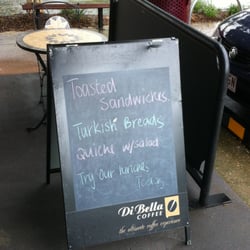 Toasted
Sandwiches
Turkish Breads
Quiche w/salad
Try our lunches
Today
Di Bella
COFFEE
the ultimate coffee experience